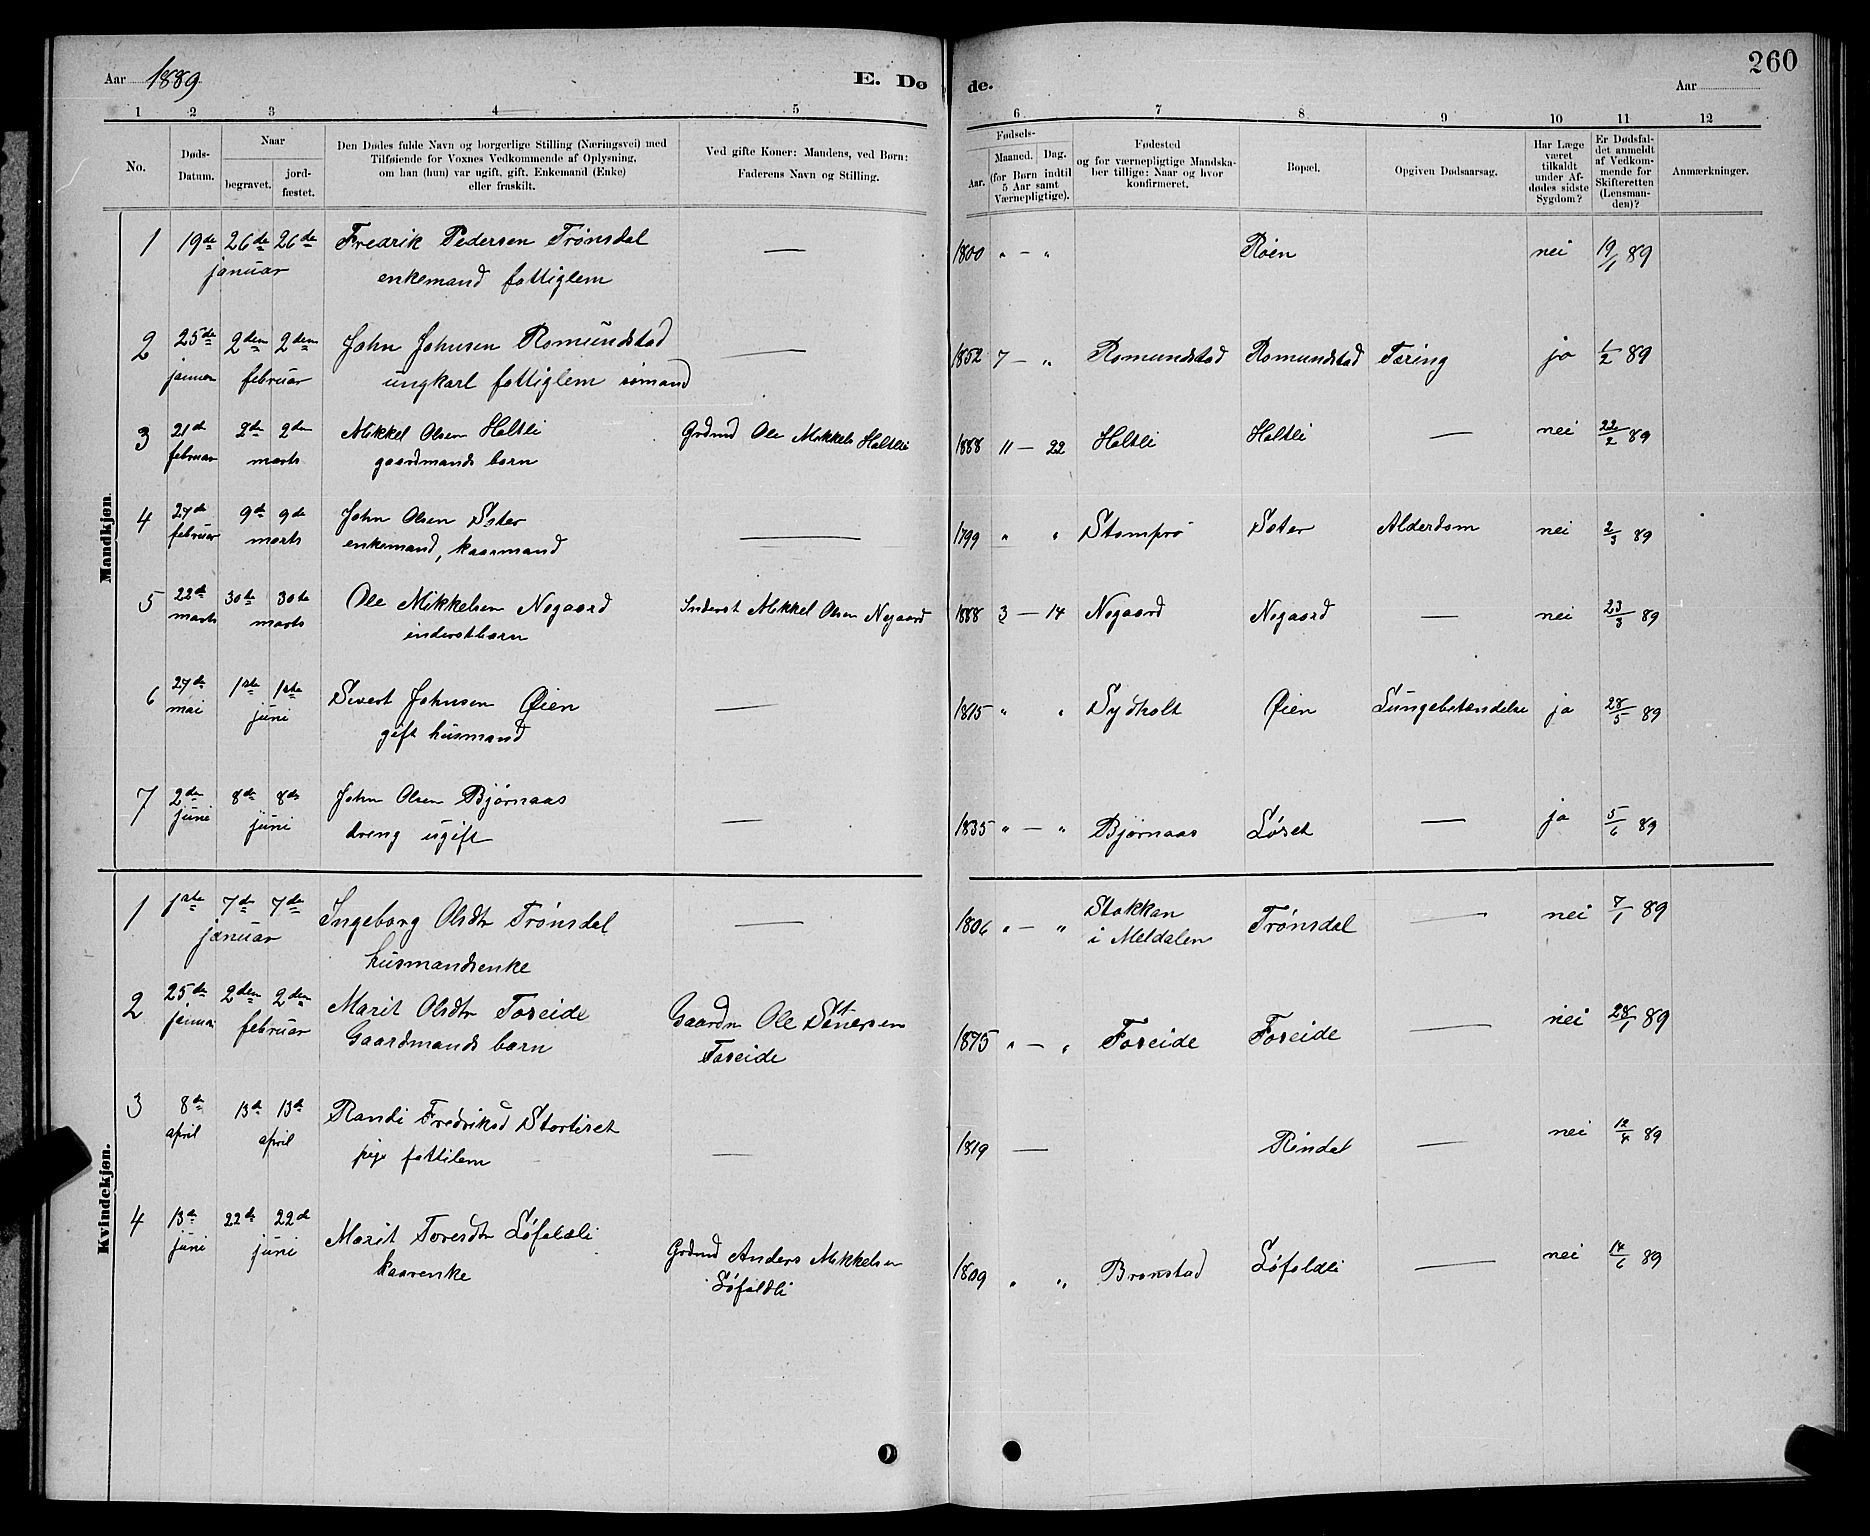 260
Aar 1889
E. Dø
de.
Aar
1 2 3 4 5 6 7 8 9 10 11 12
No.
Døds-
Datum.
Naar
begravet.
jord-
fæstet.
Den Dødes fulde Navn og borgerlige Stilling (Næringsvei) med
Tilføiende for Voxnes Vedkommende af Oplysning,
om han (hun) var ugift, gift, Enkemand (Enke)
eller fraskilt.
Ved gifte Koner: Mandens, ved Børn:
Faderens Navn og Stilling.
Fødsels-
Aar.
Maaned. Dag.
(for Børn indtil
5 Aar samt
Værnepligtige).
Fødested
og for værnepligtige Mandska-
ber tillige: Naar og hvor
konfirmeret.
Bopæl.
Opgiven Dødsaarsag.
Har Læge
været
tilkaldt
under Af-
dødes sidste
Sygdom?
Er Dødsfal-
det anmeldt
af Vedkom-
mende for
Skifteretten
(Lensman-
den)?
Anmærkninger.
Mandkjøn.
1 19de 26de 26de Fredrik Pedersen Trønsdal — 1800 " — " Røen nei 19/1 89
januar enkemand fattiglem
2 25de 2den 2den John Johnsen Romundstad — 1852 7 — " Romundstad Romundstad Tæring ja 1/2 89
januar februar ungkarl fattiglem sømand
3 21de 2de 2den Mikkel Olsen Holtli Grdmd Ole Mikkels Holtli 1888 11 — 22 Holtli Holtli — nei 22/2 89
februar marts gaardmands barn
4 27de 9de 9de John Olsen Sæter — 1799 " " Stomprø Sæter Alderdom nei 2/3 89
februar marts enkemand, kaarmand
5 22de 30te 30te Ole Mikkelsen Negaard Inderst Mikkel Olsen Negaard 1888 3 — 14 Negaard Negaard — nei 23/3 89
marts marts inderstbarn
6 27de 1ste 1ste Sivert Johnsen Øien — 1815 " " Sydholt Øien Lungebetændelse ja 28/5 89
mai juni gift husmand
7 2den 8de 8de John Olsen Bjørnaas — 1835 " — " Bjørnaas Løset — ja 5/6 89
juni juni dreng ugift
Kvindekjøn.
1 1ste 7de 7de Ingeborg Olsdtr Trønsdal — 1806 " — " Stokkan i Meldalen Trønsdal — nei 7/1 89
januar husmandsenke
2 25de 2den 2den Marit Olsdtr Foseide Gaardm Ole Foseide 1875 " — " Foseide Foseide — nei 28/1 89
januar februar Gaardmands barn
3 8de 13de 13de Randi Fredriksd — 1819 — Rindal — nei 12/4 89
april april pige fattilem
4 13de 22de 22de Marit Toresdtr Løfaldli Grdmd Anders Mikkelsen Løfaldli 1809 " " Bronstad Løfaldli — nei 14/6 89
juni juni kaarenke